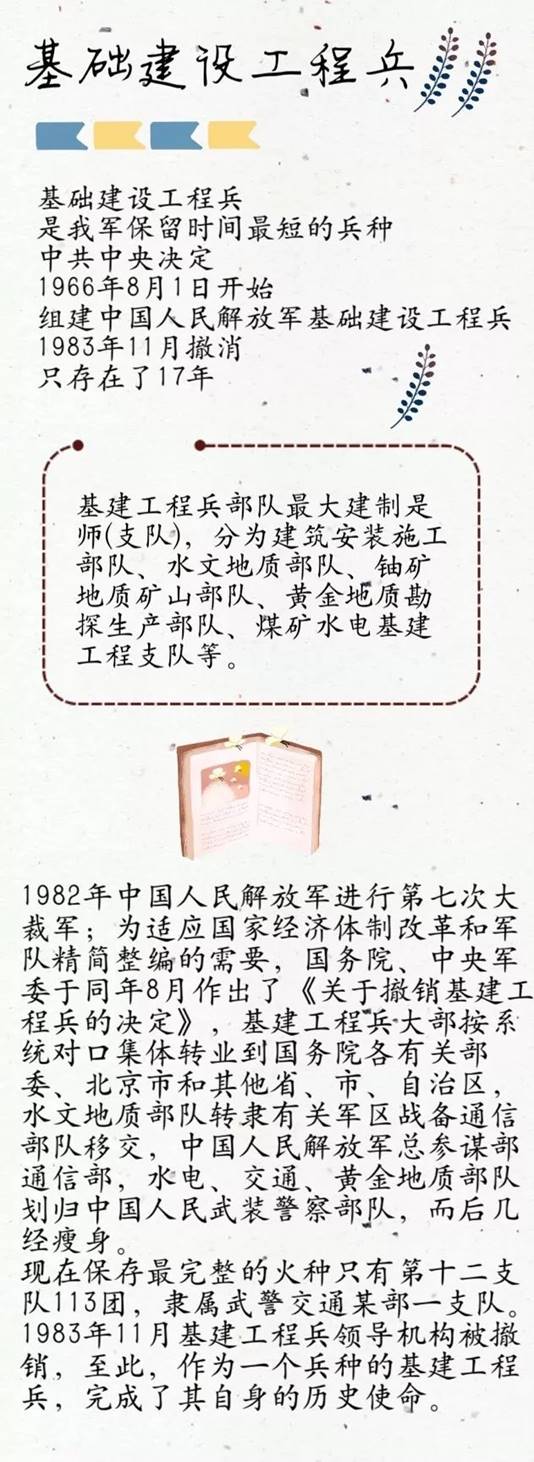 基础建设工程兵
基础建设工程兵
是我军保留时间最短的兵种
中共中央决定
1966年8月1日开始
组建中国人民解放军基础建设工程兵
1983年11月撤消
只存在了17年
基建工程兵部队最大建制是
师(支队)，分为建筑安装施工
部队、水文地质部队、铀矿
地质矿山部队、黄金地质勘
探生产部队、煤矿水电基建
工程支队等。
1982年中国人民解放军进行第七次大
裁军；为适应国家经济体制改革和军
队精简整编的需要，国务院、中央军
委于同年8月作出了《关于撤销基建工
程兵的决定》，基建工程兵大部按系
统对口集体转业到国务院各有关部
委、北京市和其他省、市、自治区，
水文地质部队转隶有关军区战备通信
部队移交，中国人民解放军总参谋部
通信部，水电、交通、黄金地质部队
划归中国人民武装警察部队，而后几
经瘦身。
现在保存最完整的火种只有第十二支
队113团，隶属武警交通某部一支队。
1983年11月基建工程兵领导机构被撤
销，至此，作为一个兵种的基建工程
兵，完成了其自身的历史使命。